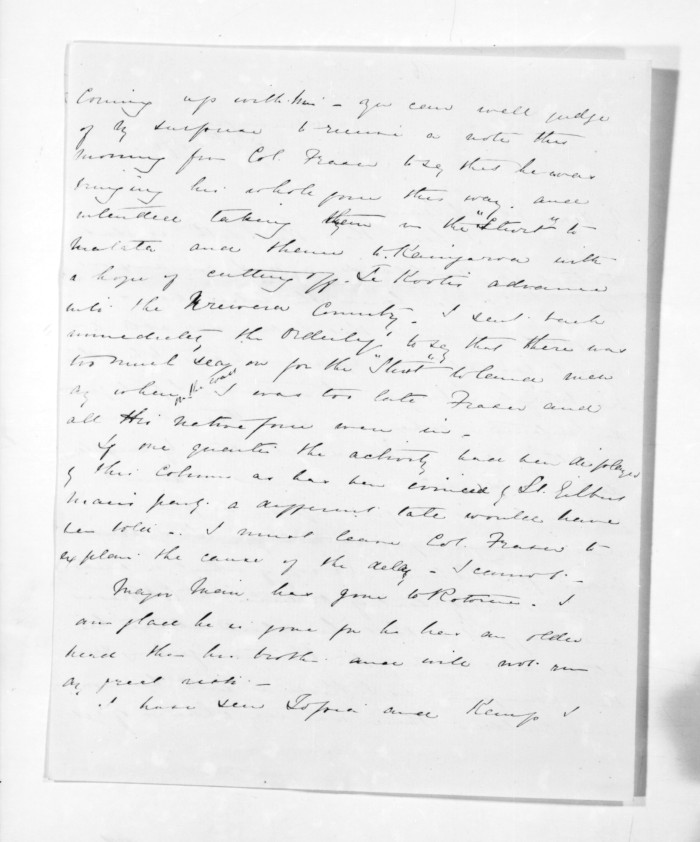 Coming up with him - you can well judge
of my surprise to receive a note this
morning from Col. Fraser to say that he was
bringing his whole force this way, and
intended taking them in the "Sturt" to
Matata and thence to Kaingaroa with
a hope of cutting off Te Kooti's advance
into the Urewera Country. I sent back
immediately the Orderly, to say that there was
too much sea on for the "Sturt" to land men
any where on the coast I was too late Fraser and
all his native force were in -
If one quarter the activity had been displayed
by this Column as has been evinced by Lt. Gilbert
Mair's party a different tale would have
been told - I must leave Col. Fraser to
explain the cause of the delay - I cannot -
Major Mair has gone to Rotorua. I
am glad he is gone for he has an older
head than his brother and will not run
any great risk -
I have seen Topia and Kemp I